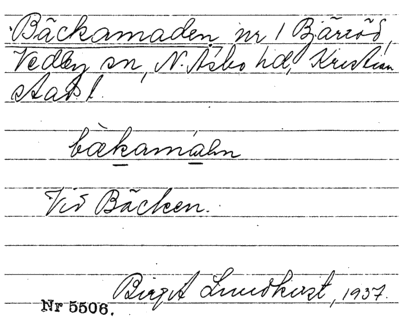 Bäckamaden, nr 1 Bjärröd,
Vedby sn, N. Åsbo hd, Kristian
stads l.
bäkamadn
Vid Bäcken.
Birgit Lundkvist, 1937.
Nr 5506.